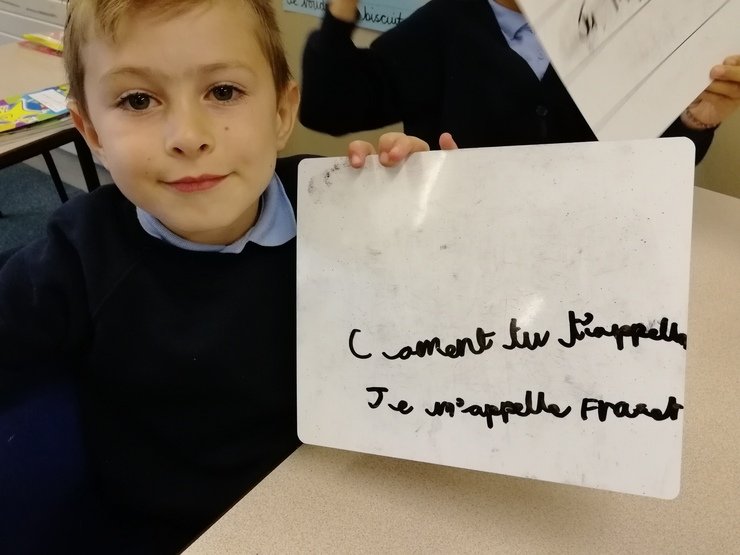 biscuit
C oment tu t'appelle
Je m'appelle